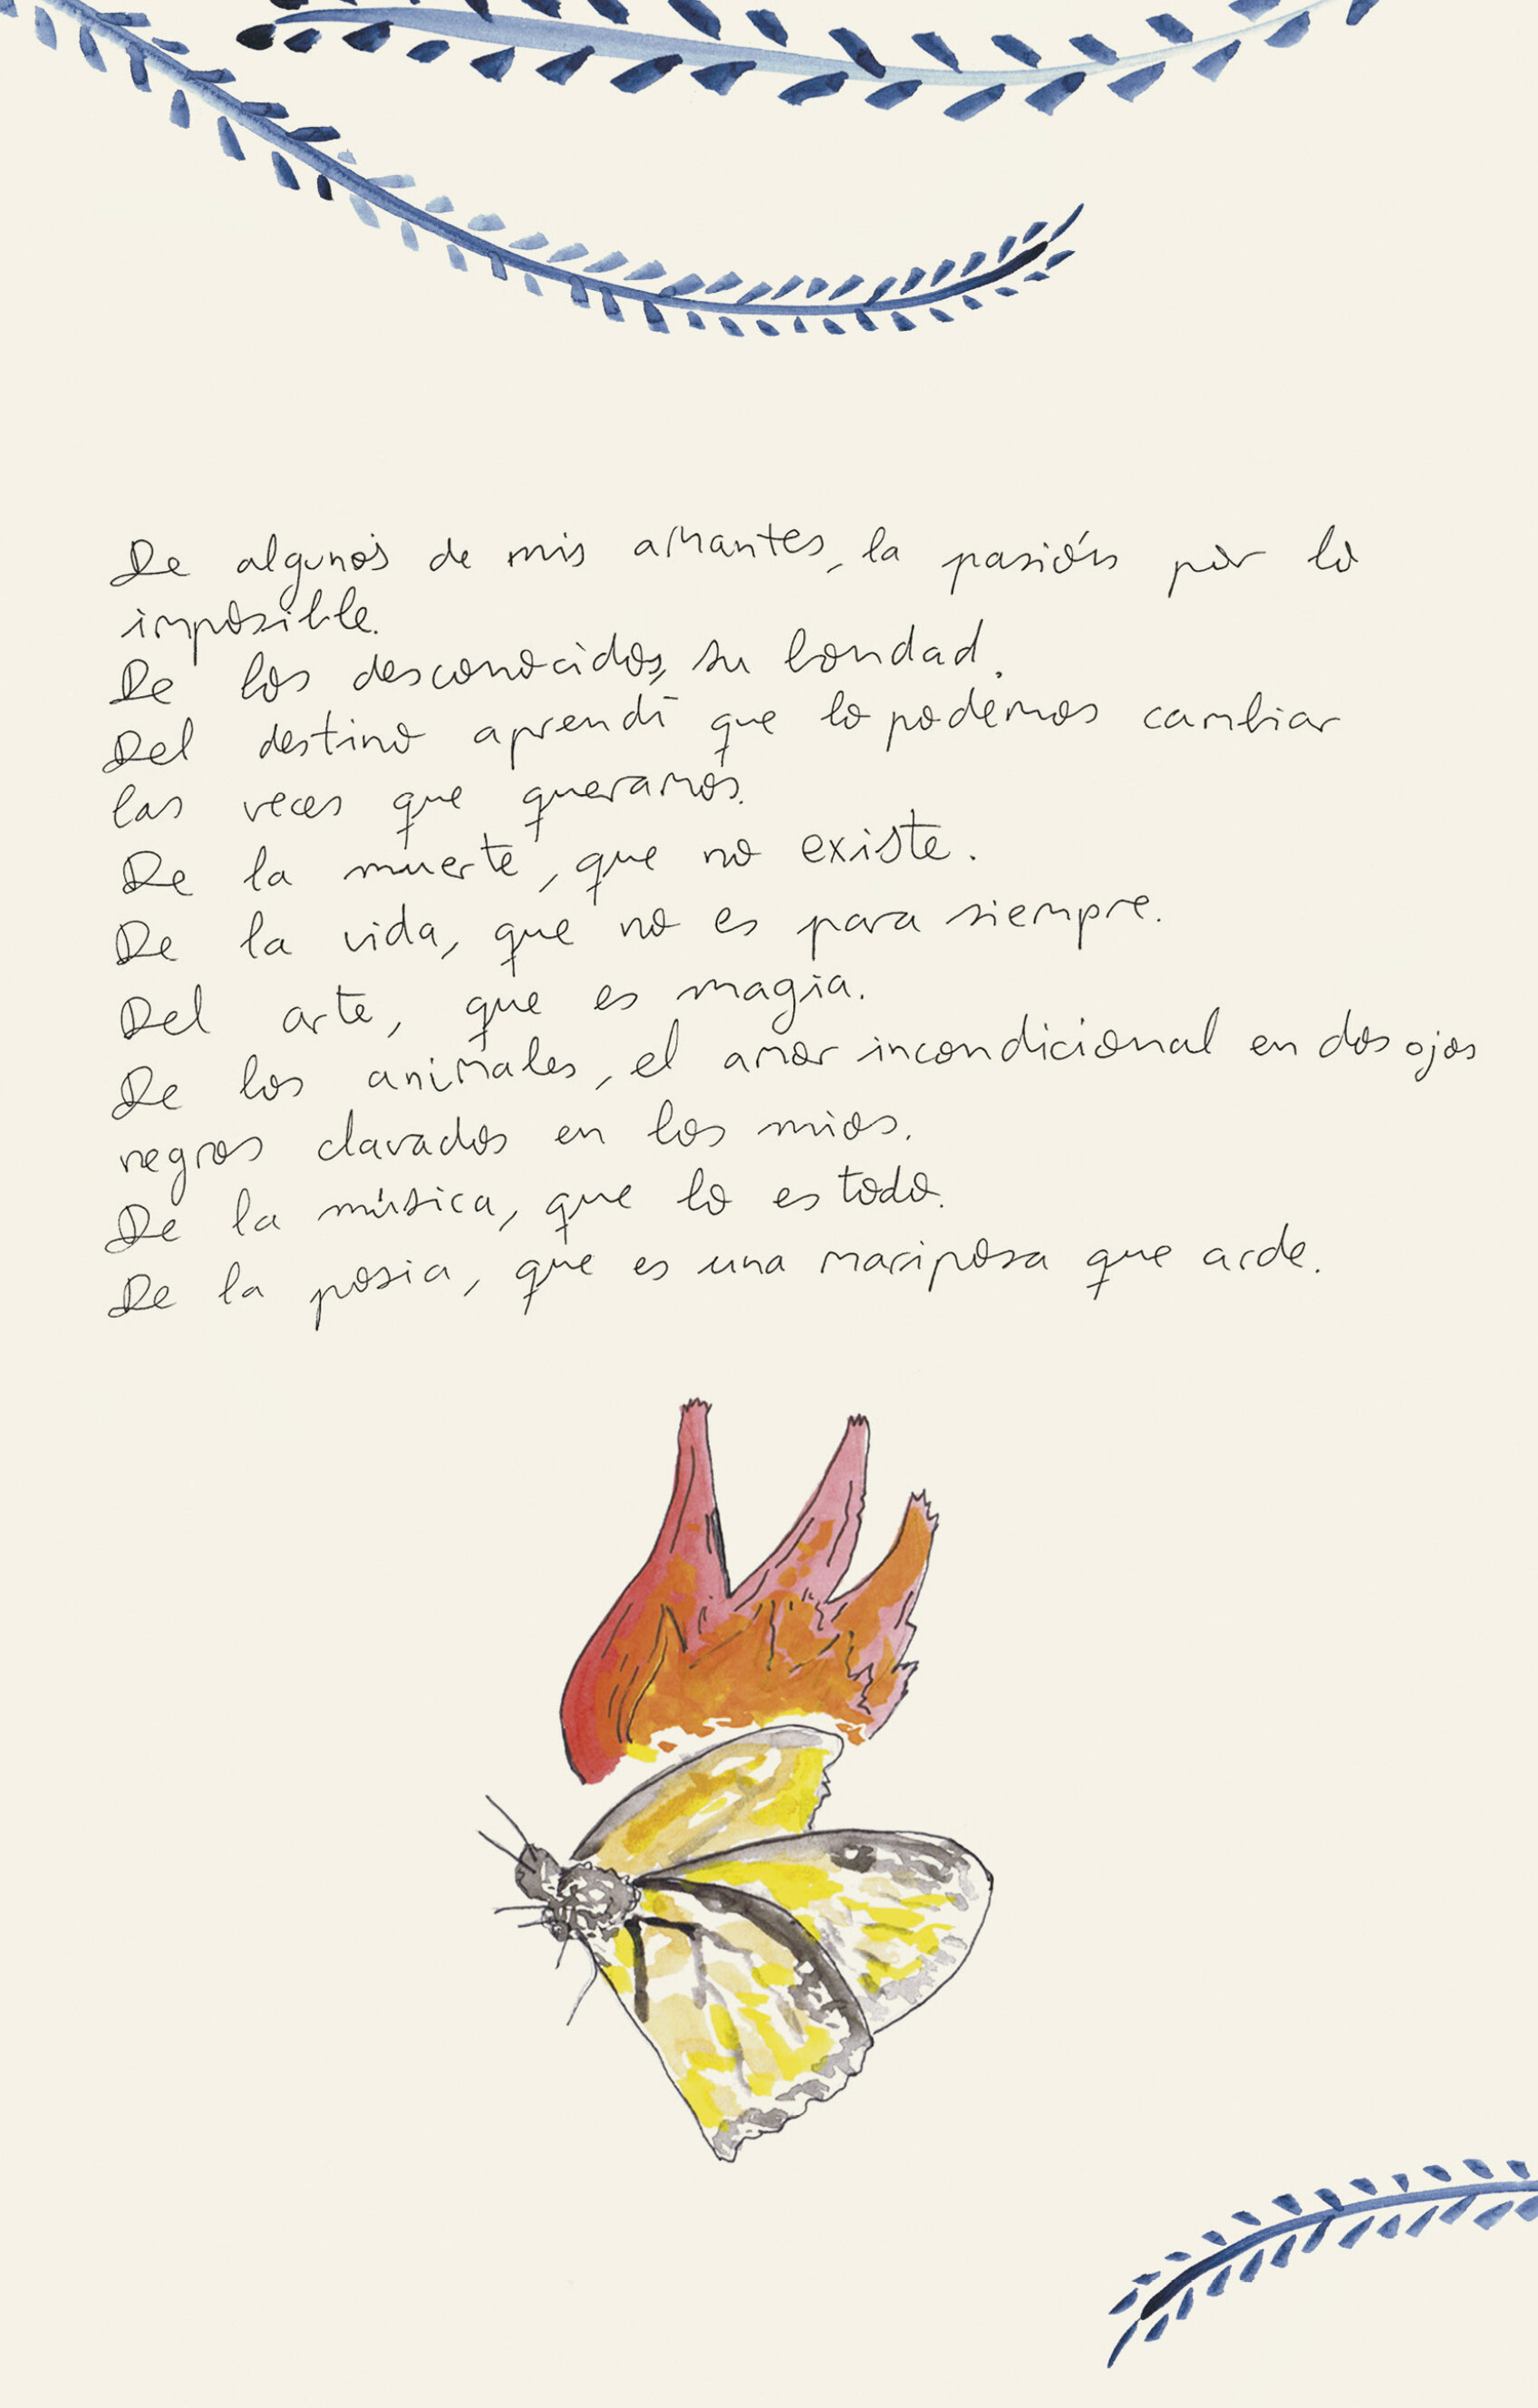 De algunos de mis amantes, la pasión por lo
imposible.
De los desconocidos, su bondad.
Del destino aprendí que lo podemos cambiar
las veces que queramos.
De la muerte, que no existe.
De la vida, que no es para siempre.
Del arte, que es magia.
De los animales, el amor incondicional en dos ojos
negros clavados en los mios.
De la música, que lo es todo.
De la posia, que es una mariposa que arde.